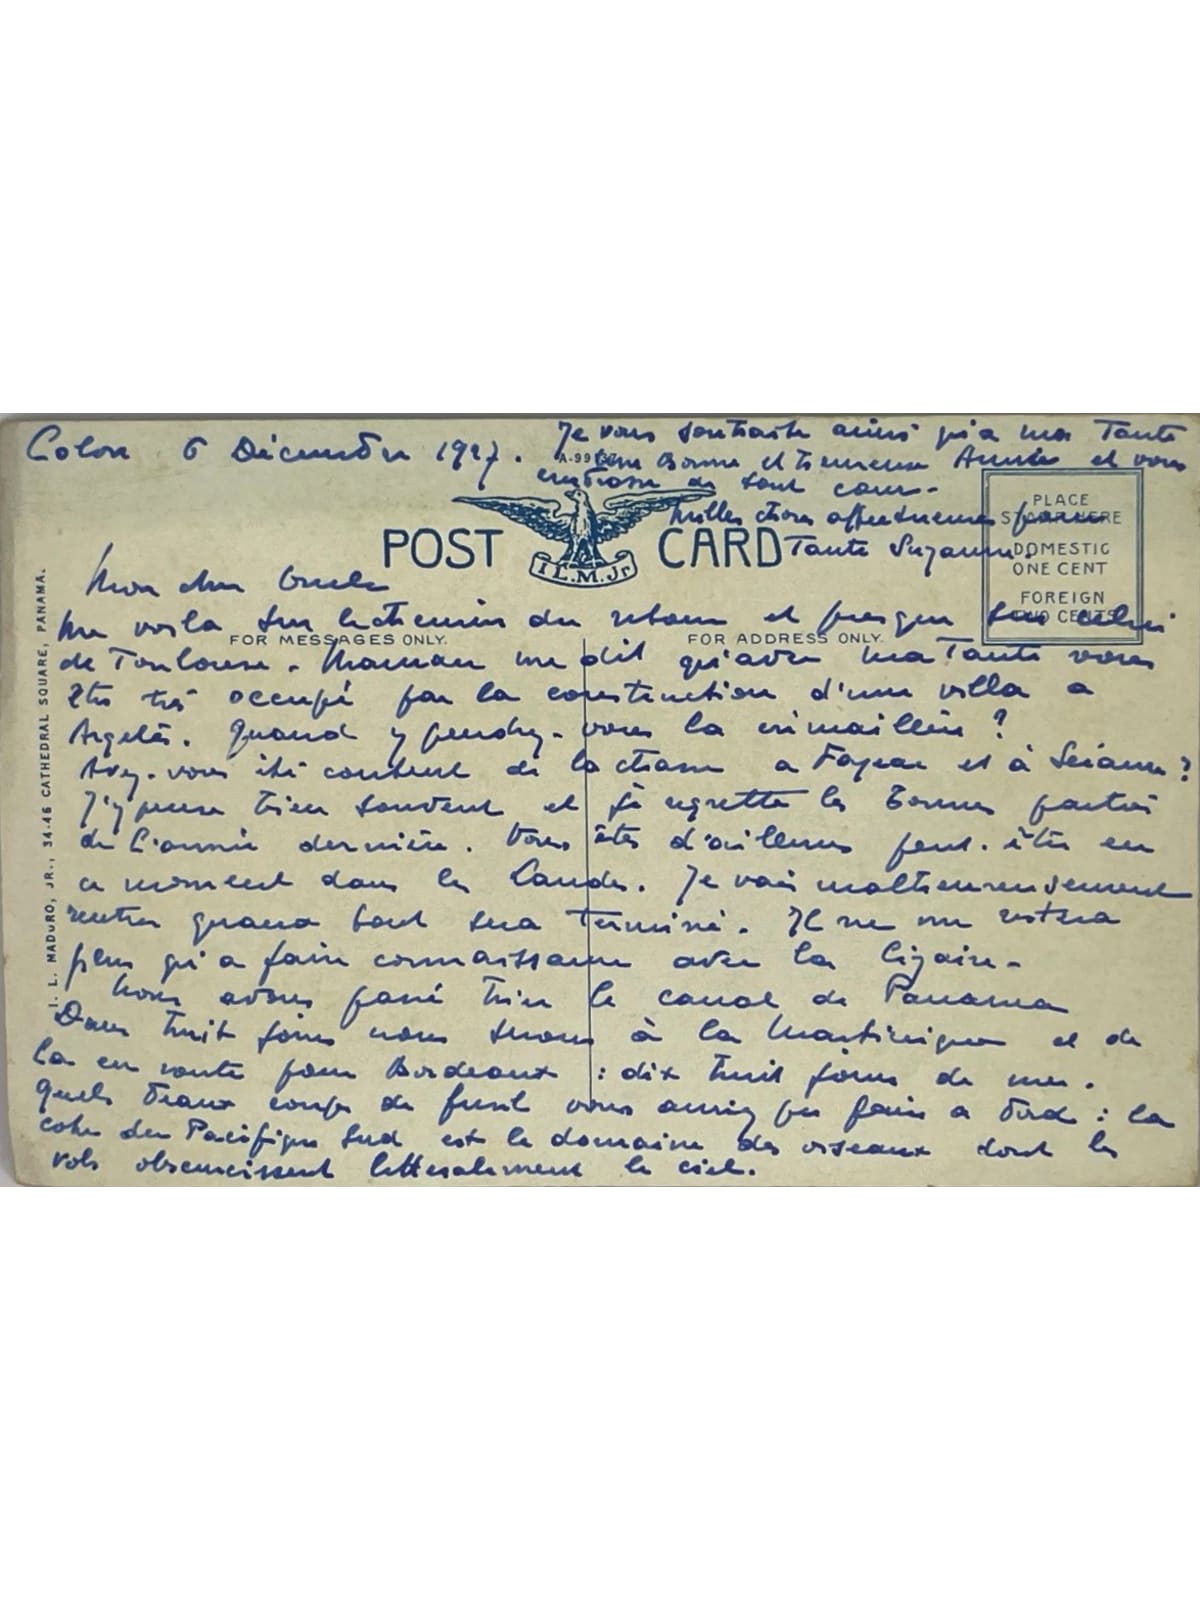 Colon 6 Décembre 1927.
Je vous souhaite ainsi qu'a ma Tante
une Bonne et heureuse Année et vous
embrasse de tout cœur.
Milles choses affectueuses pour
Tante Suzanne.
A-99
POST CARD
I.L.M.Jr
PLACE
STAMP HERE
DOMESTIC
ONE CENT
FOREIGN
TWO CENTS
FOR MESSAGES ONLY.
FOR ADDRESS ONLY.
I. L. MADURO, JR., 34-46 CATHEDRAL SQUARE, PANAMA.
Mon cher Oncle
Me voila sur le chemin du retour et presque sur celui
de Toulouse. Maman me dit qu'avec ma Tante vous
êtes très occupé par la construction d'une villa a
Argelès. Quand y pendrez-vous la crémaillère ?
Avez-vous été content de la chasse a Fajeac et à Séiasse ?
J'y pense bien souvent et je regrette les bonnes parties
de l'année dernière. Vous êtes d'ailleurs peut-être en
ce moment dans les Landes. Je vais malheureusement
rentrer quand tout sera terminé. Il ne me restera
plus qu'a faire connaissance avec la
Nous avons passé hier le canal de Panama
Dans huit jours nous serons à la Martinique et de
la en route pour Bordeaux : dix huit jours de mer.
Quels beaux coups de fusil vous auriez pu faire a bord : la
cote du Pacifique Sud est le domaine des oiseaux dont les
vols obscurcissent littéralement le ciel.